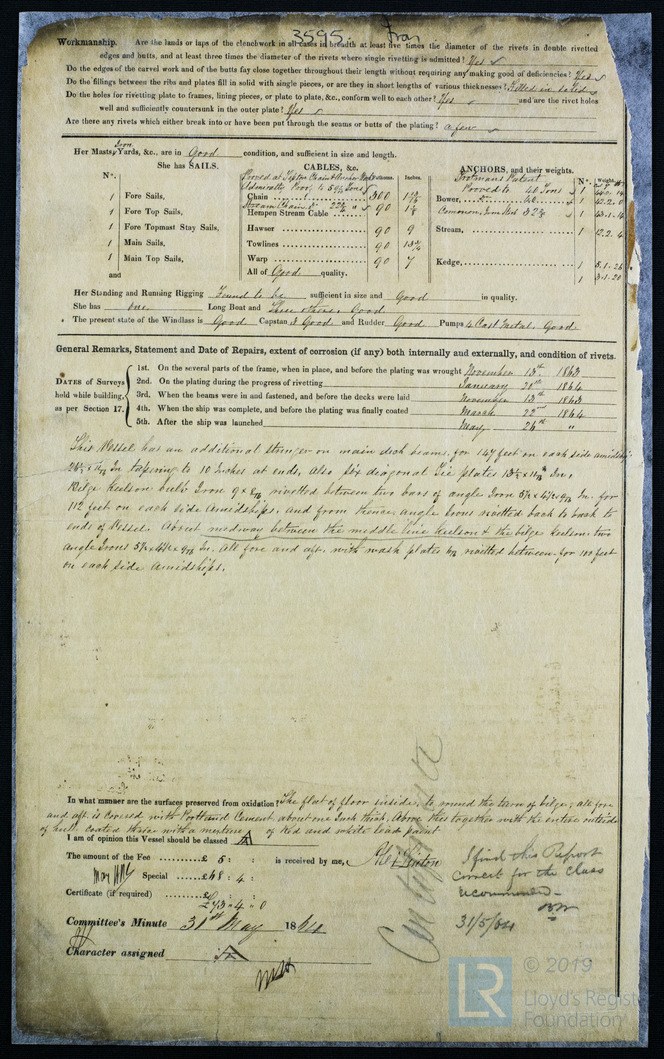 3595 Iron
Workmanship. Are the lands or laps of the clenchwork in all cases in breadth at least five times the diameter of the rivets in double rivetted
edges and butts, and at least three times the diameter of the rivets where single rivetting is admitted? Yes
Do the edges of the carvel work and of the butts fay close together throughout their length without requiring any making good of deficiencies? Yes
Do the fillings between the ribs and plates fill in solid with single pieces, or are they in short lengths of various thicknesses? Filled in solid
Do the holes for rivetting plate to frames, lining pieces, or plate to plate, &c., conform well to each other? Yes and are the rivet holes
well and sufficiently countersunk in the outer plate? Yes
Are there any rivets which either break into or have been put through the seams or butts of the plating? a few
Her Masts, Iron Yards, &c., are in Good condition, and sufficient in size and length.
She has SAILS. CABLES, &c. ANCHORS, and their weights.
N°. Fathoms. Inches. N°. Weight.
Proved at Tipton Trotmans Patent
1 Fore Sails, Chain 300 Proved to 40 Tons 1
Stream Chain 90 Bower, 1 42.2.0
1 Fore Top Sails, Hempen Stream Cable Common 1
1 Fore Topmast Stay Sails, Hawser 90 9 Stream, 1 12.2.4
1 Main Sails, Towlines 90
1 Main Top Sails, Warp 90 7 Kedge, 1
and All of Good quality. 1
Her Standing and Running Rigging Found to be sufficient in size and Good in quality.
She has one Long Boat and Three others, Good
The present state of the Windlass is Good Capstan Good and Rudder Good Pumps 4 Cast Metal, Good
General Remarks, Statement and Date of Repairs, extent of corrosion (if any) both internally and externally, and condition of rivets.
DATES of Surveys held while building, as per Section 17.
1st. On the several parts of the frame, when in place, and before the plating was wrought November 13th 1863
2nd. On the plating during the progress of rivetting January 20th 1864
3rd. When the beams were in and fastened, and before the decks were laid November 13th 1863
4th. When the ship was complete, and before the plating was finally coated March 22nd 1864
5th. After the ship was launched May 26th "
This Vessel has an additional stringer on main deck beams, for 147 feet on each side amidships
In tapering to 10 Inches at ends, also six diagonal Tie plates In,
Bilge Keelson bulb Iron rivetted between two bars of angle Iron In. for
112 feet on each side amidships, and from thence angle Irons rivetted back to back to
ends of Vessel. About midway between the middle line Keelson & the bilge Keelson, two
angle Irons In. all fore and aft, with wash plates rivetted between for 100 feet
on each side amidships.
In what manner are the surfaces preserved from oxidation? The flat of floor inside, to round the turn of bilge, all fore
and aft is covered with Portland Cement about one Inch thick. Above this together with the entire outside
of hull coated thrice with a mixture of red and white lead paint
I am of opinion this Vessel should be classed A
The amount of the Fee £ 5 : : is received by me,
Special £68 : 4 :
Certificate (if required)
£73 " 4 " 0
I find this Report
correct for the class
recommend
31/5/64
Committee's Minute 31st May 1864
Character assigned A
© 2019
LR
Lloyd's Regist
Foundation